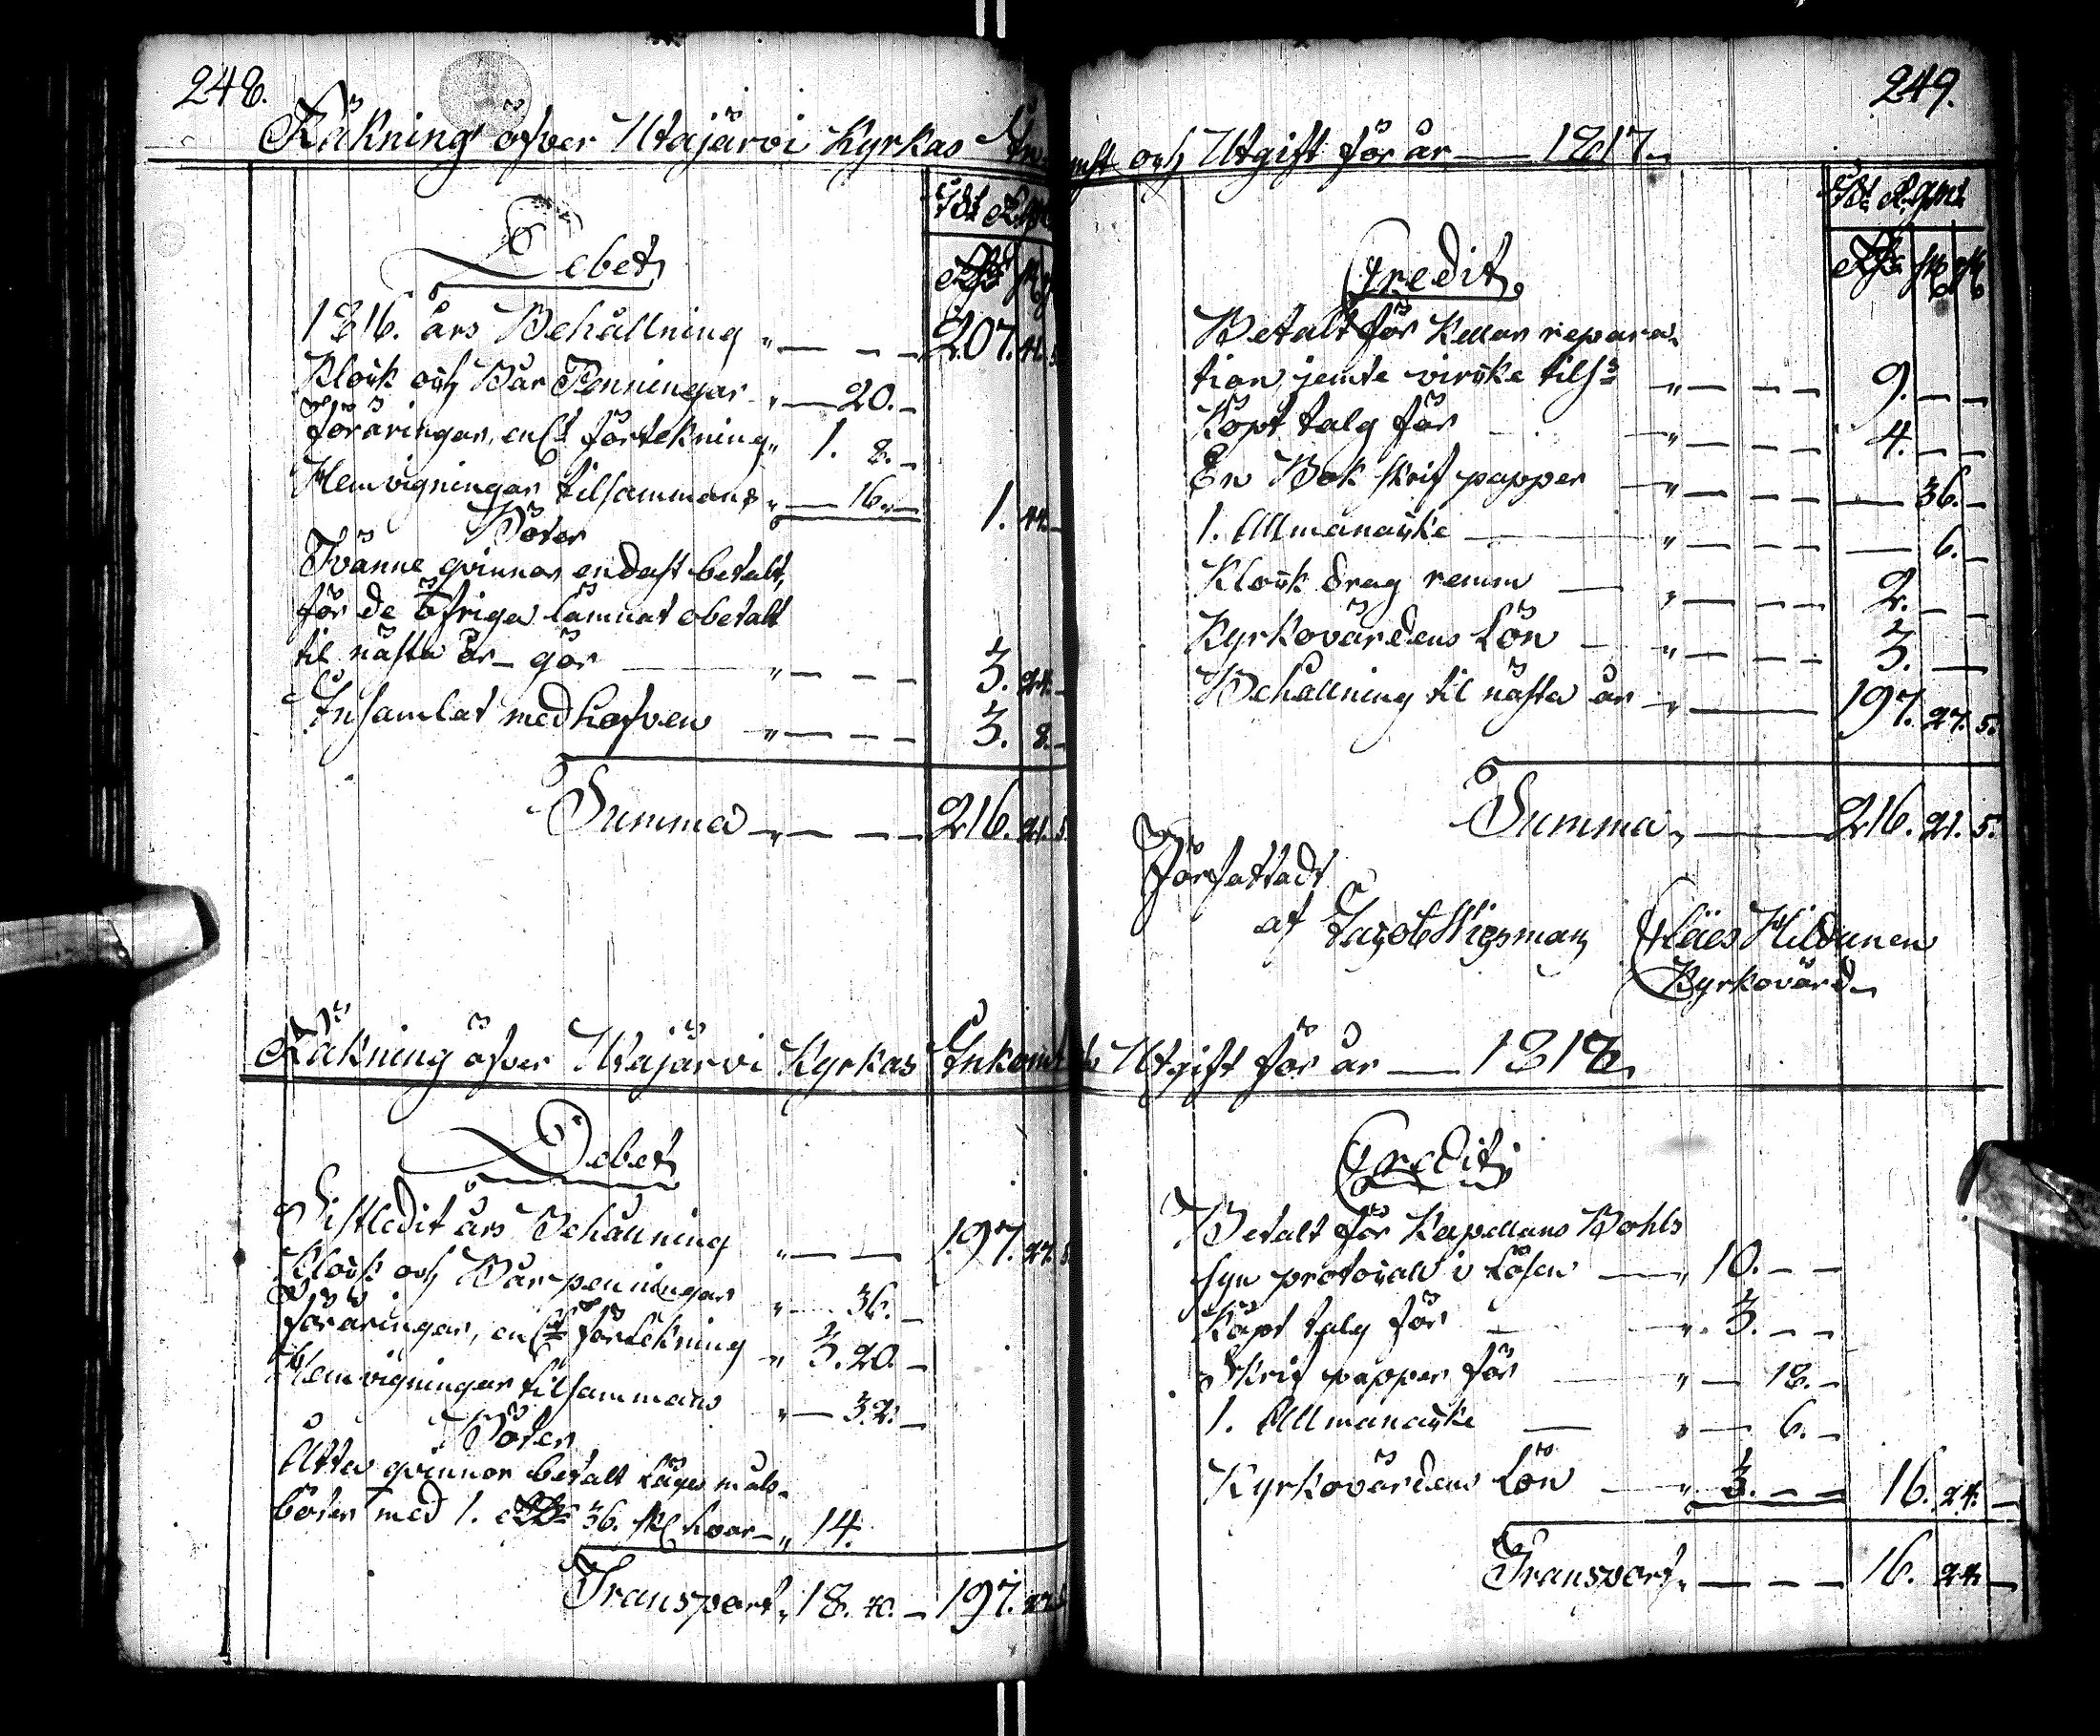 248.
Räkning öfver Utajärvi Kyrkas In
Debet
1816. års Behållning 207. 41. 5
Klock och Bår Penningar 20.
Föräringar, enl:t förtekning 1. 8.
Hemvigningar tilsammans 16. 1. 44.
Böter
Tvänne qvinnor endast betalt,
för de öfriga lämnat obetalt
til nästa år gör 3. 24.
Insamlat med hafven 3. 8.
Summa 216. 21. 5
Räkning öfver Utajärvi Kyrkas Inkomst
Debet
Sistledit års Behållning 197. 27. 5
Klock och Bår penningar 36.
Föräringar, enl:t förtekning 3. 20.
Hemvigningar tilsammans 32.
Böter
Åtta qvinnor betalt Lägersmåls
böter med 1. Rd 36. sk hvar 14.
Transport 18. 40. 197. 27. 5
249.
omst och Utgift för år 1817.
Credit
Betalt för Kellar repara
tion jemte virke tils: 9.
Köpt talg för 4.
En Bok skrif papper 36.
1. Allmanacka 6.
Klock drag remm 2.
Kyrkovärdens Lön 3.
Behållning til nästa år 197. 27. 5.
Summa 216. 21. 5.
Författadt
af Jacob Wigsman Claes Hildunen
Kyrkovärd
Utgift för år 1818.
Credit
Betalt för Kapellans Bohls
syn protocoll i Lösen 10.
Köpt talg för 3.
Skrif papper för 18.
1. Allmanacka 6.
Kyrkovärdens Lön 3. 16. 24.
Transport 16. 24.